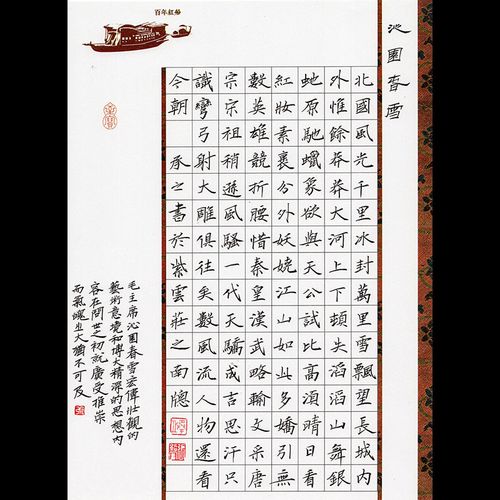 百年紅船
沁園春雪
北國風光千里冰封萬里雪飄望長城內
外惟餘莽莽大河上下頓失滔滔山舞銀
虵原馳蠟象欲與天公試比高須晴日看
紅妝素裹分外妖嬈江山如此多嬌引無
數英雄競折腰惜秦皇漢武略輸文采唐
宗宋祖稍遜風騷一代天驕成吉思汗只
識彎弓射大雕俱往矣數風流人物還看
今朝 承之書於紫雲莊之南牖
毛主席沁園春雪宏偉壯觀的
藝術意境和博大精深的思想內
容在問世之初就廣受推崇
而氣魄之大猶不可及